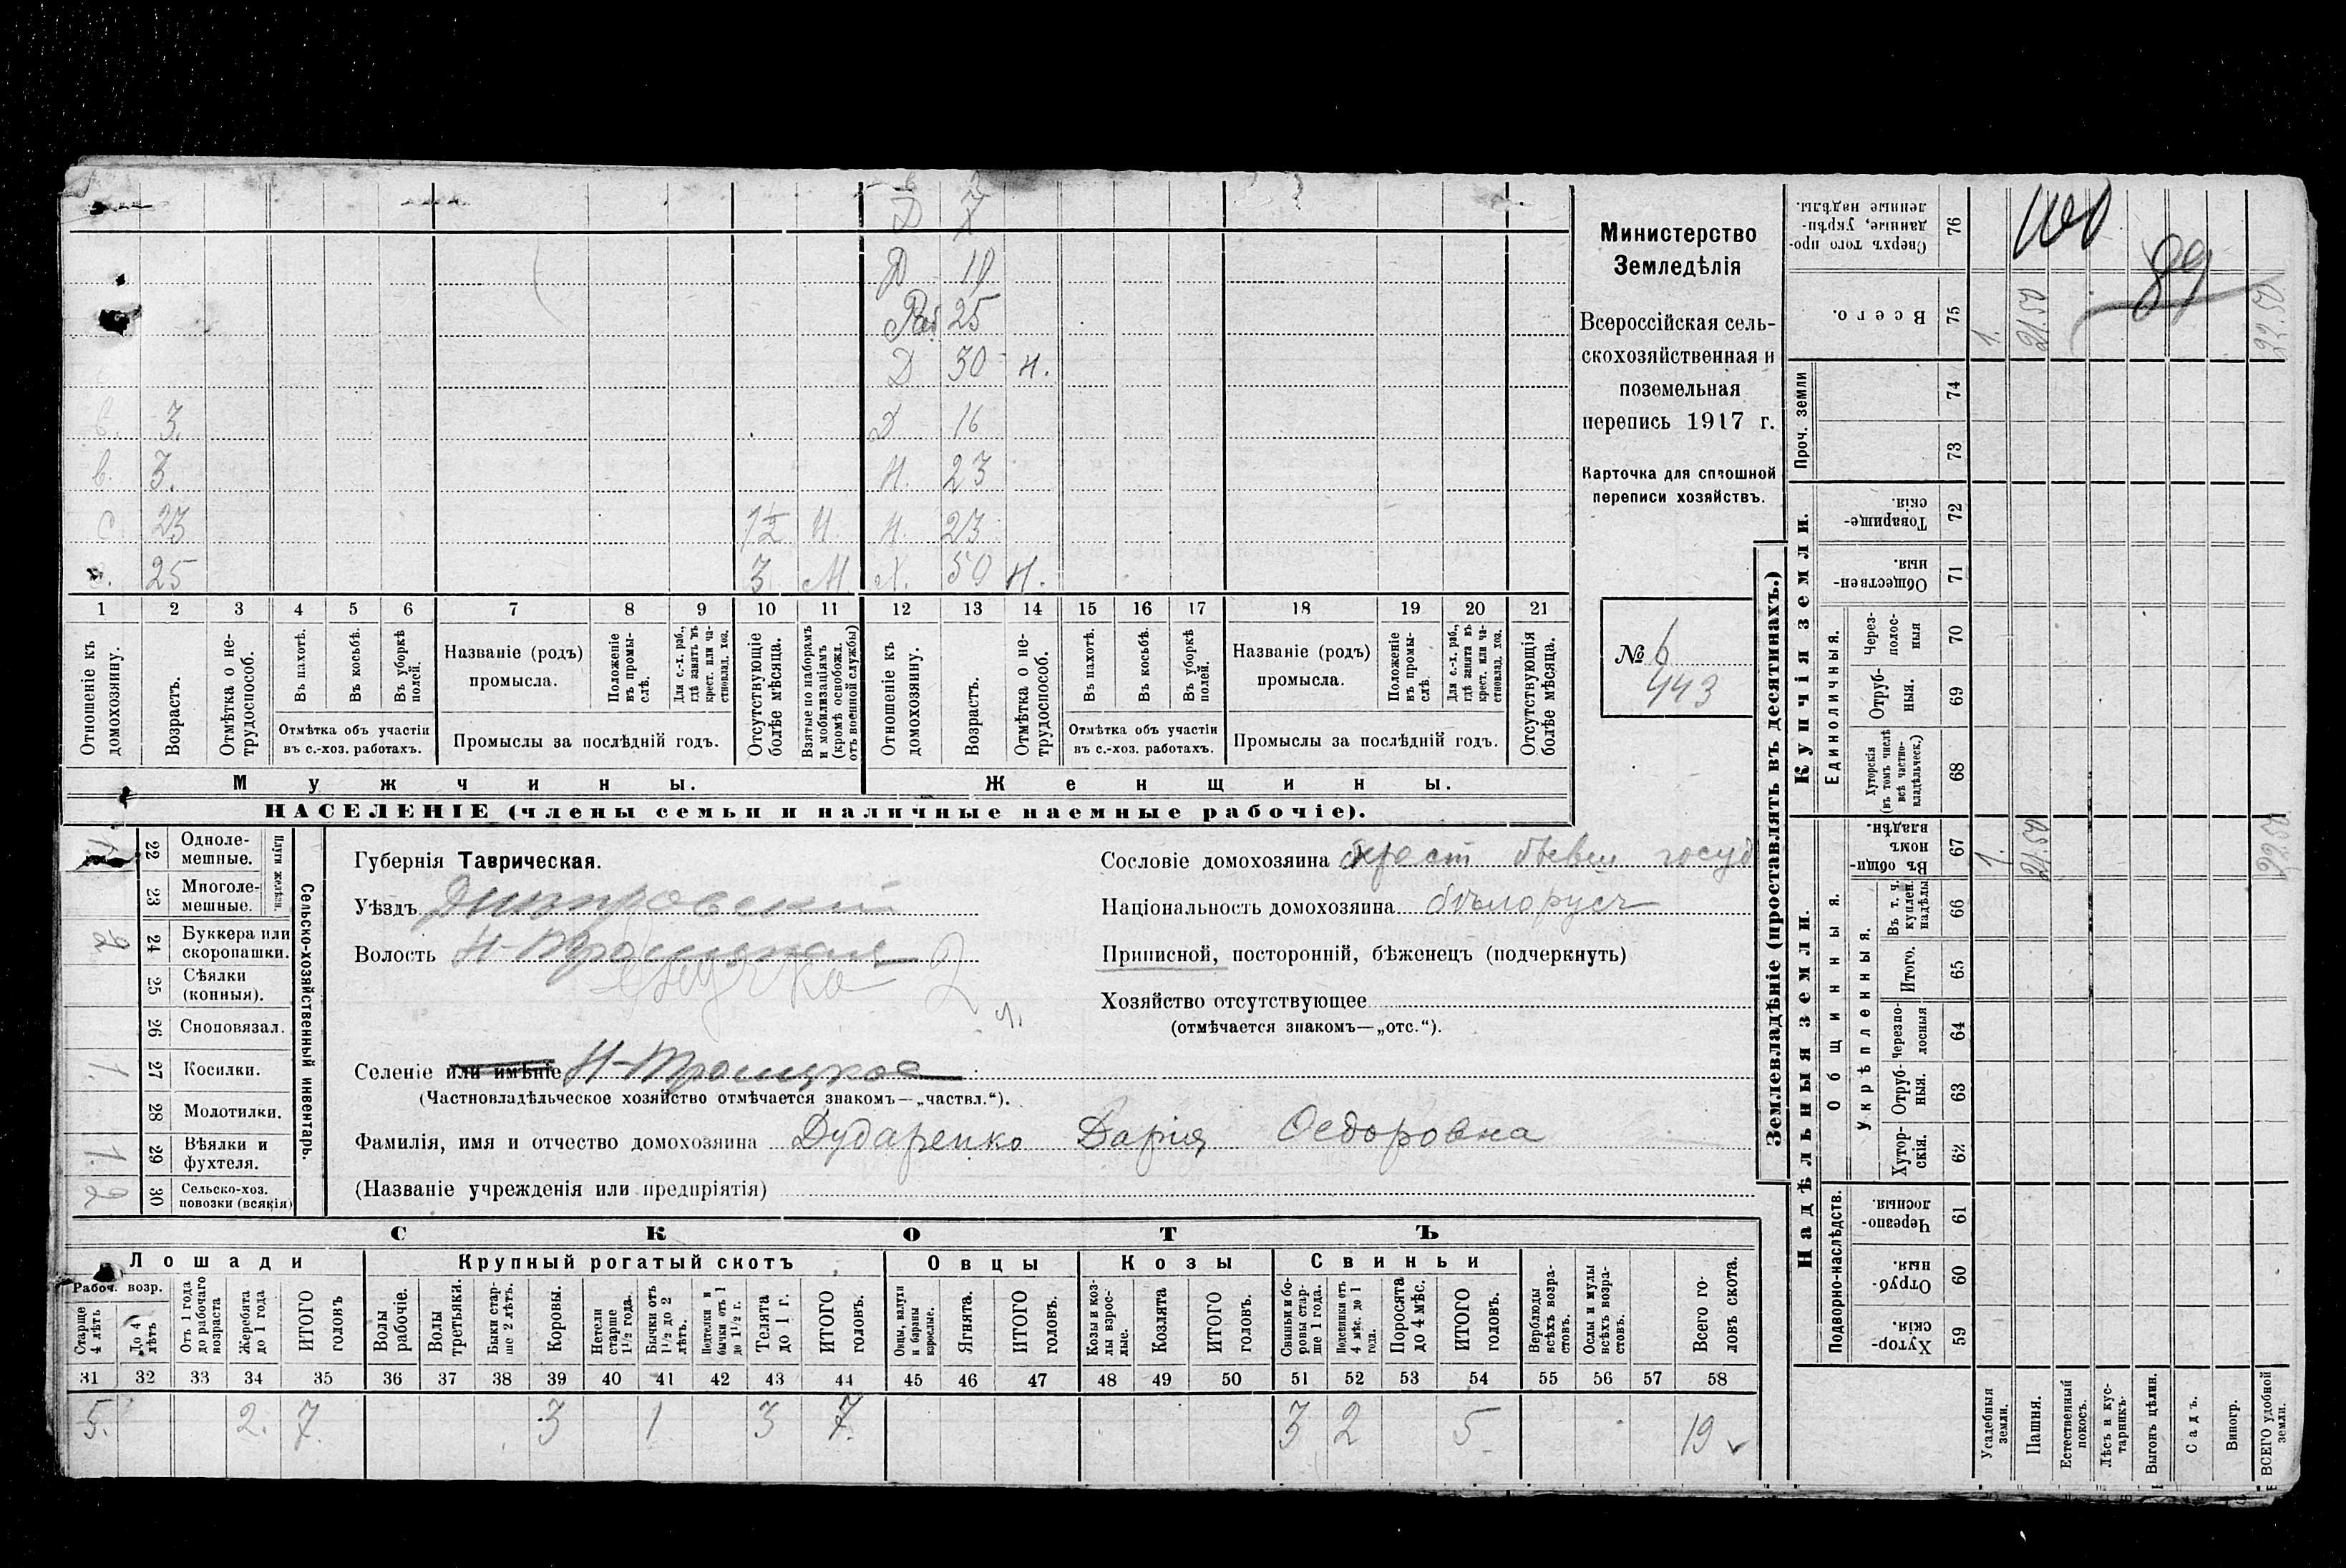 Д 7
Д 10
Раб 25
Д 30 н.
в. 3. Д 16
в. 3. Н. 23
с 23 1½ М. Н. 23
с. 25 3 М Х. 50 н.
1 2 3 4 5 6 7 8 9 10 11 12 13 14 15 16 17 18 19 20 21
Отношеніе къ домохозяину.
Возрастъ.
Отмѣтка о не-трудоспособ.
Въ пахотѣ.
Въ косьбѣ.
Въ уборкѣ полей.
Отмѣтка объ участіи
въ с.-хоз. работахъ.
Названіе (родъ)
промысла.
Положеніе въ промы-слѣ.
Для с.-х. раб., гдѣ занятъ въ крест. или ча-стновлад. хоз.
Промыслы за послѣдній годъ.
Отсутствующіе болѣе мѣсяца.
Взятые по наборамъ и мобилизаціямъ (кромѣ освобожд. отъ военной службы)
Отношеніе къ домохозяину.
Возрастъ.
Отмѣтка о не-трудоспособ.
Въ пахотѣ.
Въ косьбѣ.
Въ уборкѣ полей.
Отмѣтка объ участіи
въ с.-хоз. работахъ.
Названіе (родъ)
промысла.
Положеніе въ промы-слѣ.
Для с.-х. раб., гдѣ занята въ крест. или ча-стновлад. хоз.
Промыслы за послѣдній годъ.
Отсутствующія болѣе мѣсяца.
Мужчины. Женщины.
НАСЕЛЕНІЕ (члены семьи и наличные наемные рабочіе).
Министерство
Земледѣлія
Всероссійская сель-
скохозяйственная и
поземельная
перепись 1917 г.
Карточка для сплошной
переписи хозяйствъ.
№ 6
443
22 Одноле-мешные.
23 Многоле-мешные.
Плуги желѣзн.
2 24 Буккера или скоропашки.
25 Сѣялки (конныя).
26 Сноповязал.
1. 27 Косилки.
28 Молотилки.
1. 29 Вѣялки и фухтеля.
2 30 Сельско-хоз. повозки (всякія)
Сельско-хозяйственный инвентарь.
Губернія Таврическая.
Уѣздъ Днѣпровскій
Волость Н-Троицкая
2
Селеніе или имѣніе Н-Троицкое
(Частновладѣльческое хозяйство отмѣчается знакомъ—„частвл.“).
Фамилія, имя и отчество домохозяина Дударенко Дарія Ѳедоровна
(Названіе учрежденія или предпріятія)
Сословіе домохозяина крест бывш госуд
Національность домохозяина бѣлорусъ
Приписной, посторонній, бѣженецъ (подчеркнуть)
Хозяйство отсутствующее
(отмѣчается знакомъ—„отс.“).
СКОТЪ
Лошади Крупный рогатый скотъ Овцы Козы Свиньи
Рабоч. возр.
Старше 4 лѣтъ
До 4 лѣтъ
Отъ 1 года до рабочаго возраста
Жеребята до 1 года
ИТОГО головъ
Волы рабочіе.
Волы третьяки.
Быки стар-ше 2 лѣтъ.
Коровы.
Нетели старше 1½ года.
Бычки отъ 1½ до 2 лѣтъ.
Подтелки и бычки отъ 1 до 1½ г.
Телята до 1 г.
ИТОГО головъ.
Овцы, валухи и бараны взрослые.
Ягнята.
ИТОГО головъ.
Козы и коз-лы взрос-лые.
Козлята
ИТОГО головъ.
Свиньи и бо-ровы стар-ше 1 года.
Подсвинки отъ 4 мѣс. до 1 года.
Поросята до 4 мѣс.
ИТОГО головъ.
Верблюды всѣхъ возра-стовъ.
Ослы и мулы всѣхъ возра-стовъ.
Всего го-ловъ скота.
31 32 33 34 35 36 37 38 39 40 41 42 43 44 45 46 47 48 49 50 51 52 53 54 55 56 57 58
5. 2. 7. 3 1 3 7. 3 2 5 19
Землевладѣніе (проставлять въ десятинахъ.)
Надѣльныя земли. Купчія земли.
Сверхъ того про-данные, укрѣп-ленные надѣлы. 76
Всего. 75 1. 21.50 22.50
89
Проч. земли 74 73
Товарище-скія. 72
Обществен-ныя. 71
Единоличныя.
Через-полос-ныя 70
Отруб-ныя. 69
Хуторскія (въ томъ числѣ всѣ частно-владѣльческ.) 68
Общинныя.
Въ общи-номъ владѣн. 67 1. 21.50 22.50
Въ т. ч. куплен. надѣлы 66
Укрѣпленныя.
Итого. 65
Черезпо-лосныя 64
Отруб-ныя. 63
Хутор-скія. 62
Подворно-наслѣдств.
Черезпо-лосныя 61
Отруб-ныя. 60
Хутор-скія. 59
Усадебныя земли.
Пашня.
Естественный покосъ.
Лѣсъ и кус-тарникъ.
Выгонъ цѣлин.
Садъ.
Виногр.
ВСЕГО удобной земли.